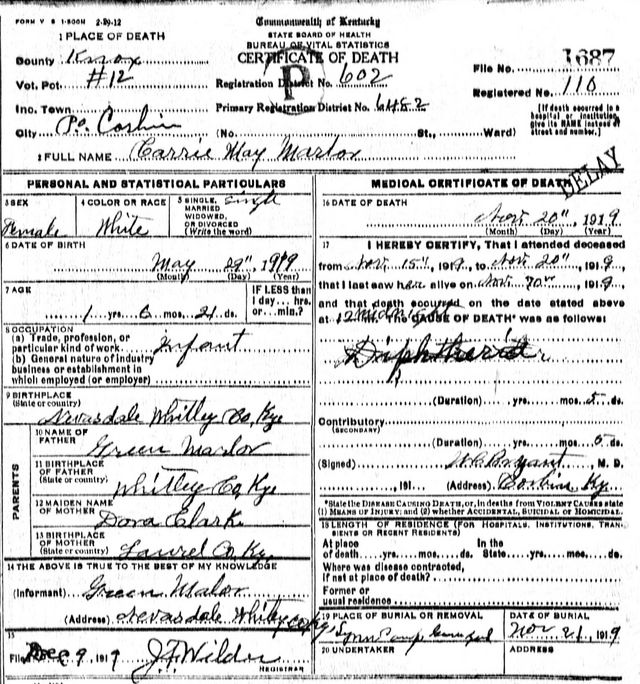 FORM V S 1-500M 2-29-12
Commonwealth of Kentucky
STATE BOARD OF HEALTH
BUREAU OF VITAL STATISTICS
CERTIFICATE OF DEATH
1 PLACE OF DEATH
County Knox
Vot. Pct. #12
Inc. Town
City P.O. Corbin (No. St., Ward)
Registration District No. 602
Primary Registration District No. 6482
P
File No. 1687
Registered No. 110
[If death occurred in a
hospital or institution,
give its NAME instead of
street and number.]
2 FULL NAME Carrie May Marlor
DELAY
PERSONAL AND STATISTICAL PARTICULARS
3 SEX
Female
4 COLOR OR RACE
White
5 SINGLE,
MARRIED
WIDOWED,
OR DIVORCED
(Write the word)
Single
6 DATE OF BIRTH
May 29", 1919
(Month) (Day) (Year)
7 AGE
1 yrs. 6 mos. 21 ds.
IF LESS than
1 day... hrs.
or... min.?
8 OCCUPATION
(a) Trade, profession, or
particular kind of work Infant
(b) General nature of industry
business or establishment in
which employed (or employer)
9 BIRTHPLACE
(State or country)
Nevasdale Whitley Co, Kye
PARENTS
10 NAME OF
FATHER
Green Marlor
11 BIRTHPLACE
OF FATHER
(State or country)
Whitley Co, Kye
12 MAIDEN NAME
OF MOTHER
Dora Clark
13 BIRTHPLACE
OF MOTHER
(State or country)
Laurel Co. Ky.
14 THE ABOVE IS TRUE TO THE BEST OF MY KNOWLEDGE
(Informant) Green Malor
(Address) Nevasdale Whitley Co Ky
15
Filed Dec 9, 1919 J.F. Wilder
REGISTRAR
MEDICAL CERTIFICATE OF DEATH
16 DATE OF DEATH
Nov. 20", 1919
(Month) (Day) (Year)
17 I HEREBY CERTIFY, That I attended deceased
from Nov. 15", 1919, to Nov. 20", 1919,
that I last saw her alive on Nov. 20", 1919
and that death occurred on the date stated above
at 12 m. The CAUSE OF DEATH* was as follows:
Diphtheria
(Duration) yrs. mos. 5 ds.
Contributory
(SECONDARY)
(Duration) yrs. mos. 5 ds.
(Signed) Bryant, M. D.
, 191 (Address) Corbin Ky.
*State the DISEASE CAUSING DEATH, or, in deaths from VIOLENT CAUSES state
(1) MEANS OF INJURY; and (2) whether ACCIDENTAL, SUICIDAL or HOMICIDAL.
18 LENGTH OF RESIDENCE (FOR HOSPITALS, INSTITUTIONS, TRANSIENTS OR RECENT RESIDENTS)
At place In the
of death yrs. mos. ds. State yrs. mos. ds.
Where was disease contracted,
if not at place of death?
Former or
usual residence
19 PLACE OF BURIAL OR REMOVAL
DATE OF BURIAL
Nov 21, 1919
20 UNDERTAKER
ADDRESS